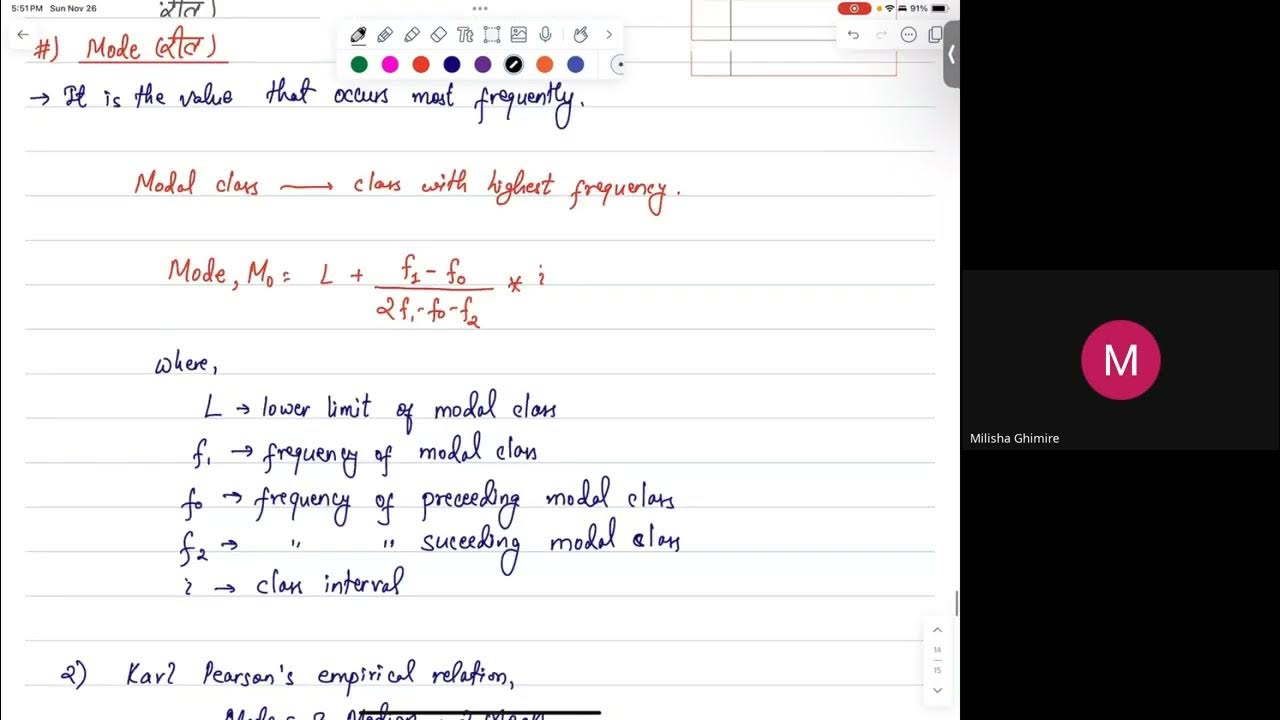 5:51PM Sun Nov 26
91%
#) Mode (रीत)
→ It is the value that occurs most frequently.
Modal class → class with highest frequency.
Mode, M₀ = L + (f₁ - f₀) / (2f₁ - f₀ - f₂) * i
where,
L → lower limit of modal class
f₁ → frequency of modal class
f₀ → frequency of preceeding modal class
f₂ → " " suceeding modal class
i → class interval
2) Karl Pearson's empirical relation,
Tt
14
15
M
Milisha Ghimire